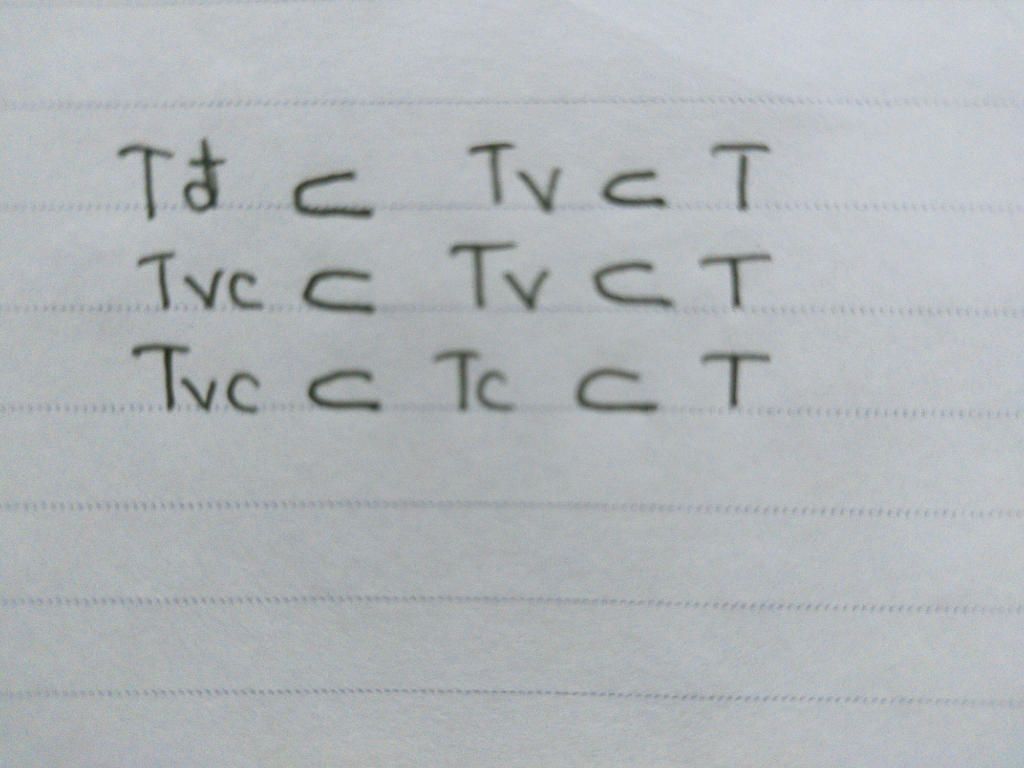 Tđ ⊂ Tv ⊂ T
Tvc ⊂ Tv ⊂ T
Tvc ⊂ Tc ⊂ T